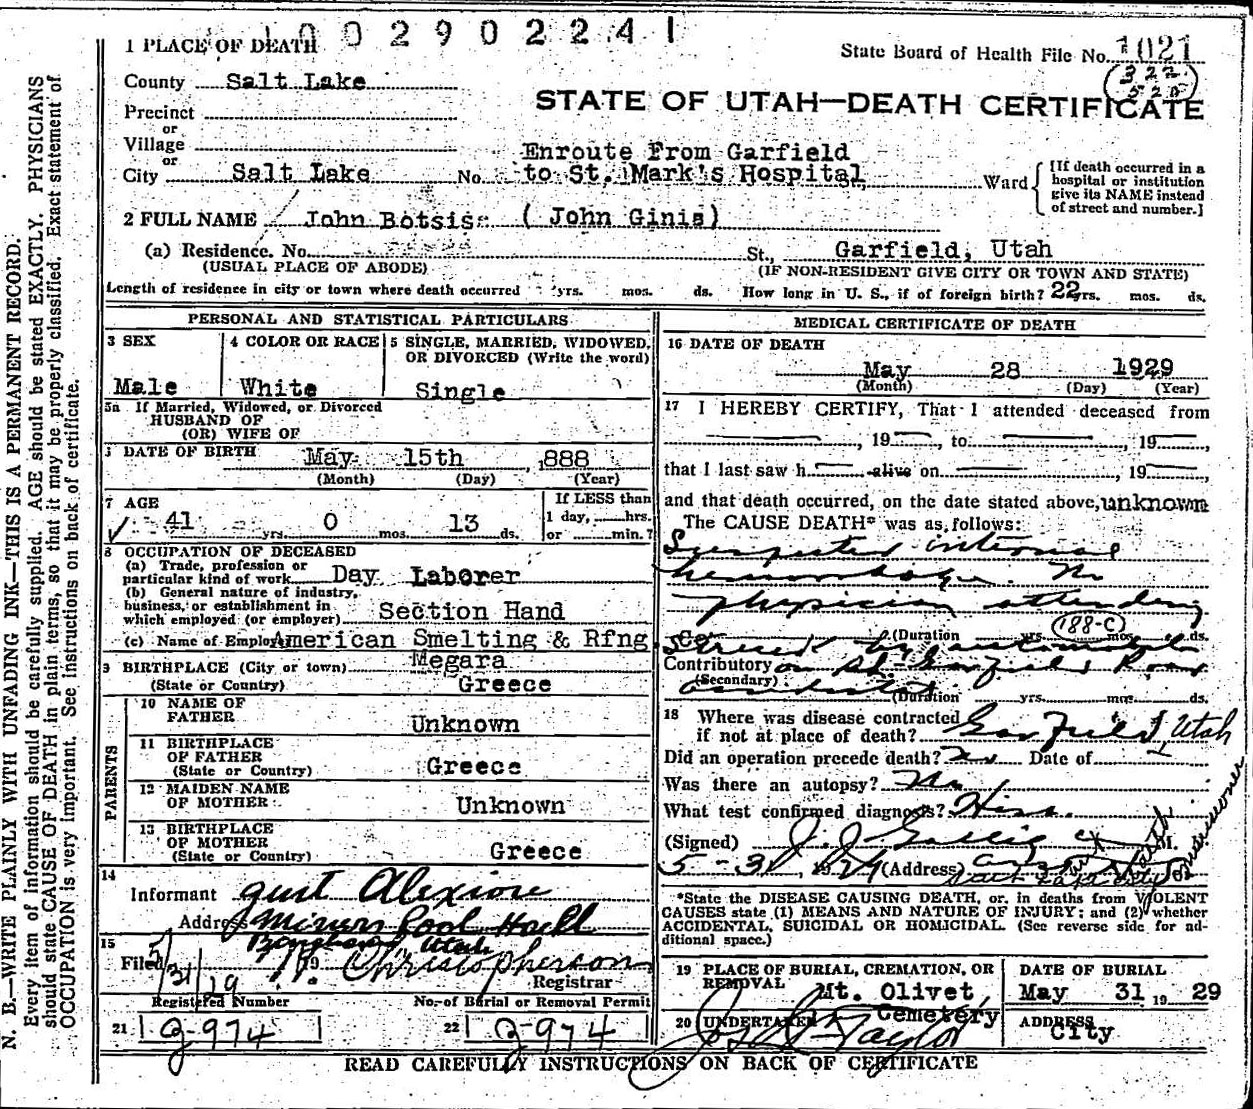 1 0 0 2 9 0 2 2 4 1
1 PLACE OF DEATH
State Board of Health File No. 1021
(322
525)
County Salt Lake
STATE OF UTAH—DEATH CERTIFICATE
Precinct
or
Village
or
City Salt Lake No. Enroute From Garfield
to St. Mark's Hospital, Ward
[If death occurred in a
hospital or institution
give its NAME instead
of street and number.]
2 FULL NAME John Botsis (John Ginis)
(a) Residence. No. St., Garfield, Utah
(USUAL PLACE OF ABODE) (IF NON-RESIDENT GIVE CITY OR TOWN AND STATE)
Length of residence in city or town where death occurred yrs. mos. ds. How long in U. S., if of foreign birth? 22 yrs. mos. ds.
PERSONAL AND STATISTICAL PARTICULARS
3 SEX
Male
4 COLOR OR RACE
White
5 SINGLE, MARRIED, WIDOWED,
OR DIVORCED (Write the word)
Single
5a If Married, Widowed, or Divorced
HUSBAND OF
(OR) WIFE OF
DATE OF BIRTH May 15th, 1888
(Month) (Day) (Year)
7 AGE
41 yrs. 0 mos. 13 ds.
If LESS than
1 day, hrs.
or min.?
8 OCCUPATION OF DECEASED
(a) Trade, profession or
particular kind of work Day Laborer
(b) General nature of industry,
business, or establishment in
which employed (or employer) Section Hand
(c) Name of Employer American Smelting & Rfng. Co.
9 BIRTHPLACE (City or town) Megara
(State or Country) Greece
PARENTS
10 NAME OF
FATHER Unknown
11 BIRTHPLACE
OF FATHER
(State or Country) Greece
12 MAIDEN NAME
OF MOTHER Unknown
13 BIRTHPLACE
OF MOTHER
(State or Country) Greece
14
Informant Gust Alexiou
Address Miners Pool Hall
Bingham Utah
15
Filed 5/31/19 Christopherson
Registrar
Registered Number No. of Burial or Removal Permit
21 2-974 22 2-974
MEDICAL CERTIFICATE OF DEATH
16 DATE OF DEATH
May 28 1929
(Month) (Day) (Year)
17 I HEREBY CERTIFY, That I attended deceased from
, 19 , to , 19
that I last saw h alive on , 19
and that death occurred, on the date stated above, unknown
The CAUSE DEATH* was as follows:
Suspected internal
hemorrhage. No
physician attending
(188-C)
(Duration yrs. mos. ds.
Struck by automobile
Contributory on St. Garfield Road
(Secondary)
accidental
(Duration yrs. mos. ds.
18 Where was disease contracted
if not at place of death? Garfield, Utah
Did an operation precede death? No Date of
Was there an autopsy? No
What test confirmed diagnosis? His.
(Signed) J. J. M.
5-31, 1929 (Address)
Salt Lake City
Commissioner
*State the DISEASE CAUSING DEATH, or, in deaths from VIOLENT
CAUSES state (1) MEANS AND NATURE OF INJURY; and (2) whether
ACCIDENTAL, SUICIDAL OR HOMICIDAL. (See reverse side for ad-
ditional space.)
19 PLACE OF BURIAL, CREMATION, OR
REMOVAL Mt. Olivet,
Cemetery
DATE OF BURIAL
May 31 1929
20 UNDERTAKER Taylor
ADDRESS
City
READ CAREFULLY INSTRUCTIONS ON BACK OF CERTIFICATE
N. B.—WRITE PLAINLY WITH UNFADING INK—THIS IS A PERMANENT RECORD.
Every item of information should be carefully supplied. AGE should be stated EXACTLY. PHYSICIANS
should state CAUSE OF DEATH in plain terms, so that it may be properly classified. Exact statement of
OCCUPATION is very important. See instructions on back of certificate.